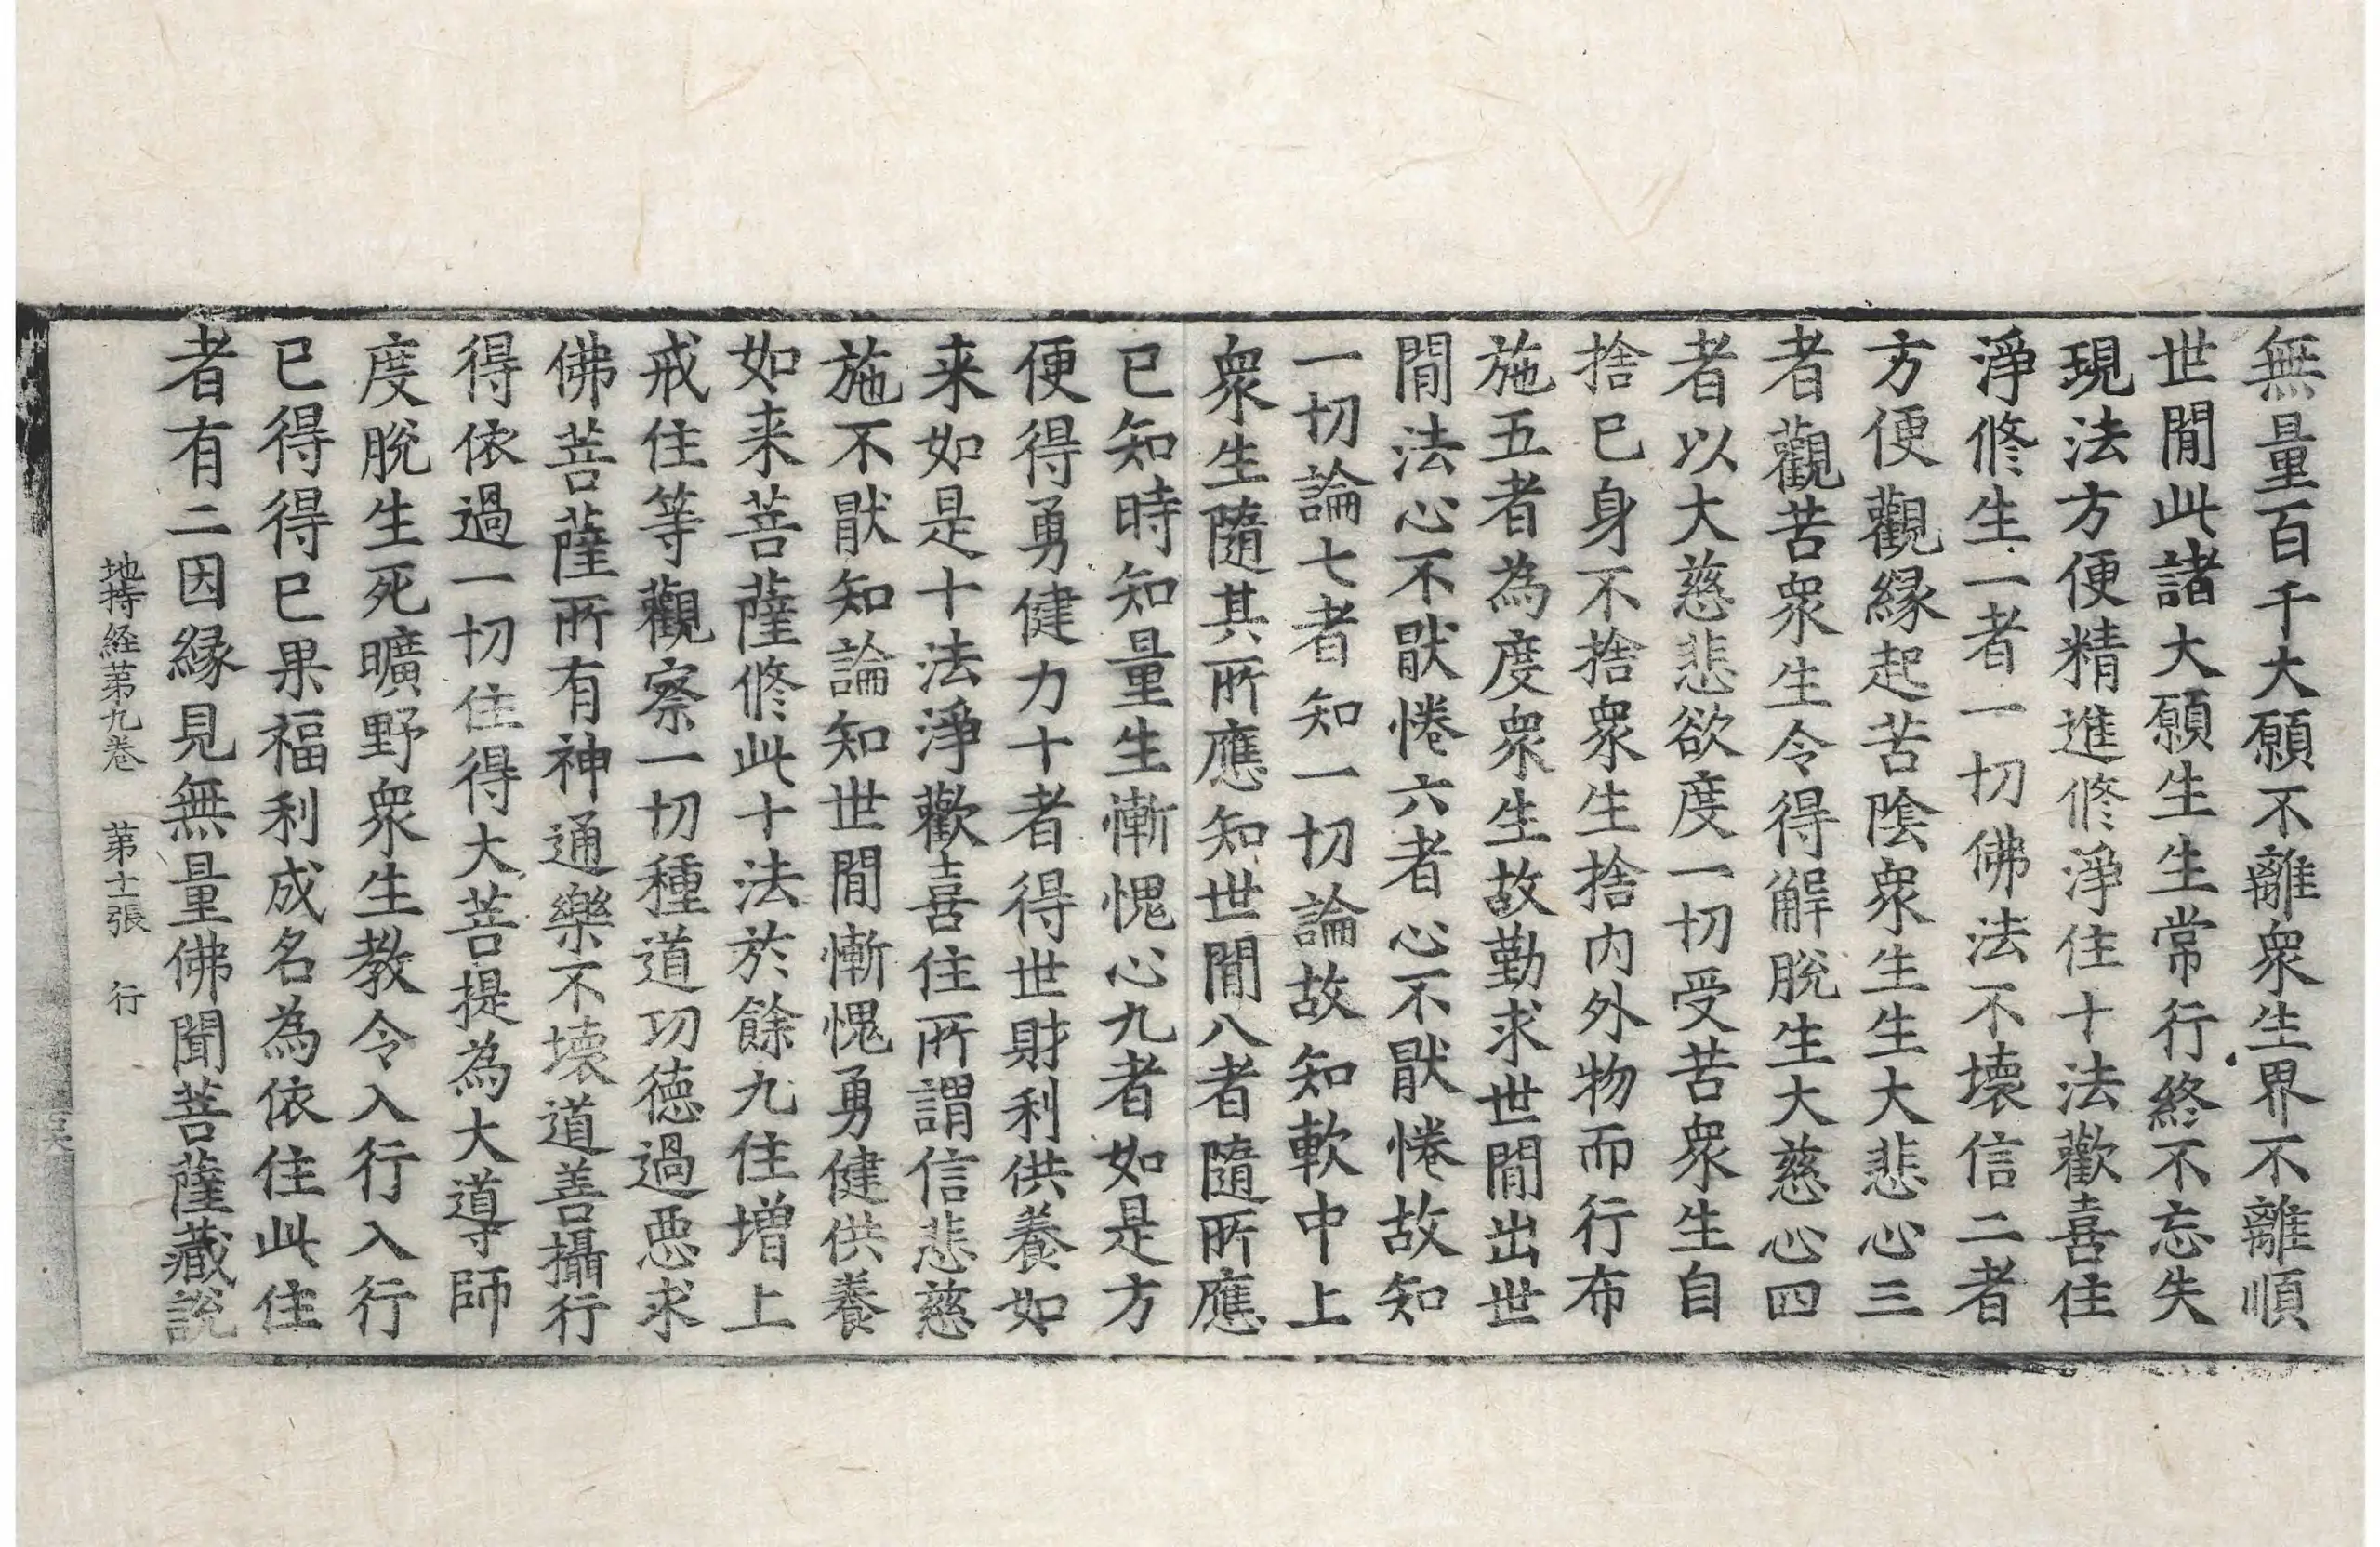 無量百千大願不離衆生界不離順
世間此諸大願生生常行終不忘失
現法方便精進修淨住十法歡喜住
淨修生一者一切佛法不壞信二者
方便觀緣起苦陰衆生生大悲心三
者觀苦衆生令得解脫生大慈心四
者以大慈悲欲度一切受苦衆生自
捨已身不捨衆生捨内外物而行布
施五者為度衆生故勤求世間出世
間法心不猒惓六者心不猒惓故知
一切論七者知一切論故知軟中上
衆生隨其所應知世間八者隨所應
已知時知量生慚愧心九者如是方
便得勇健力十者得世財利供養如
来如是十法淨歡喜住所謂信悲慈
施不猒知論知世間慚愧勇健供養
如来菩薩修此十法於餘九住增上
戒住等觀察一切種道功德過惡求
佛菩薩所有神通樂不壞道善攝行
得依過一切住得大菩提為大導師
度脫生死曠野衆生教令入行入行
已得得已果福利成名為依住此住
者有二因緣見無量佛聞菩薩藏說
地持経苐九卷 苐十一張 行